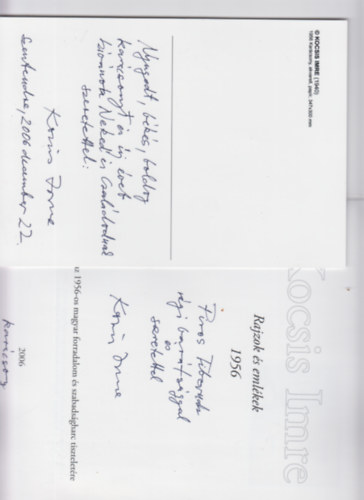 © KOCSIS IMRE (1940)
Nyugodt, békés, boldog
karácsonyt és új évet
kívánok Neked és Családodnak
szeretettel:
Kocsis Imre
Szentendre, 2006 december 22.
Kocsis Imre
Rajzok és emlékek
1956
Piros Tibornak
régi barátsággal
és
szeretettel
Kocsis Imre
az 1956-os magyar forradalom és szabadságharc tiszteletére
2006
karácsony